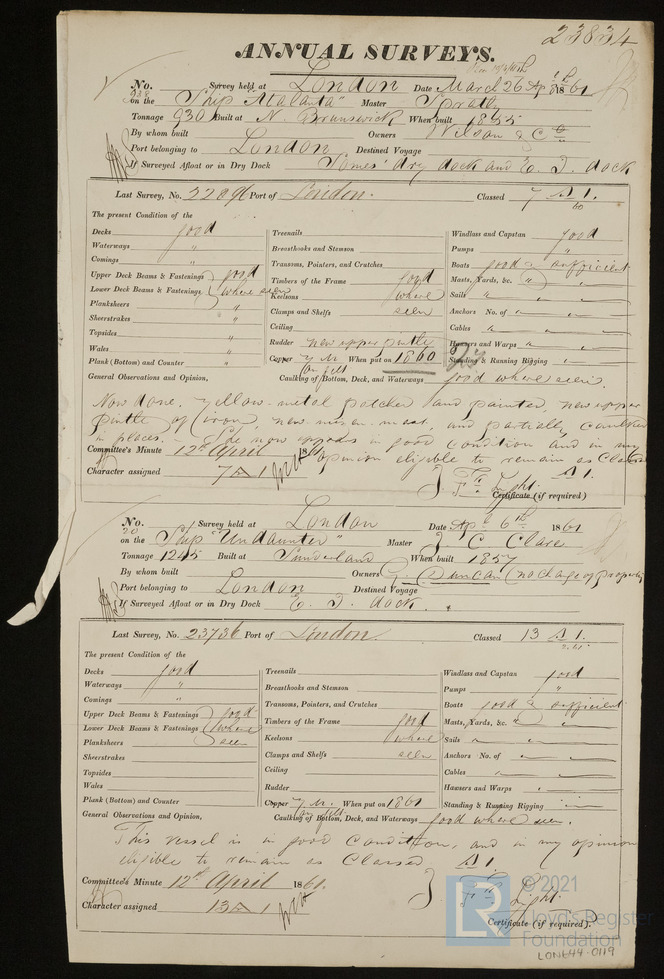 23834
ANNUAL SURVEYS.
No. 228 Survey held at London Date March 26 Apl 8th 1861
on the Ship "Atalanta" Master Spratt
Tonnage 930 Built at N. Brunswick When built 1855
By whom built Owners Wilson & Co
Port belonging to London Destined Voyage
If Surveyed Afloat or in Dry Dock Somes' dry dock and E. I. dock
Last Survey, No. 22896 Port of London. Classed 7 A 1. 60
The present Condition of the
Decks good Treenails Windlass and Capstan good
Waterways " Breasthooks and Stemson Pumps "
Comings " Transoms, Pointers, and Crutches Boats good & sufficient
Upper Deck Beams & Fastenings good Timbers of the Frame good Masts, Yards, &c. "
Lower Deck Beams & Fastenings where seen Keelsons where Sails "
Planksheers " Clamps and Shelfs seen Anchors No. of "
Sheerstrakes " Ceiling Cables "
Topsides " Rudder new upper pintle Hawsers and Warps "
Wales " Copper y. m. When put on 1860 Standing & Running Rigging "
Plank (Bottom) and Counter " on felt
General Observations and Opinion, Caulking of Bottom, Deck, and Waterways good where seen.
Now done. Yellow metal patched and painted, new upper
pintle of iron, new mizen mast, and partially caulked
in places. - She now appears in good condition and in my
opinion eligible to remain as Classed A 1.
Committee's Minute 12th April 1861
Character assigned 7 A 1
Certificate (if required)
No. 20 Survey held at London Date Apl 6th 1861
on the Ship "Undaunted" Master J C Clare
Tonnage 1245 Built at Sunderland When built 1857
By whom built Owners D. Duncan (no change of property
Port belonging to London Destined Voyage
If Surveyed Afloat or in Dry Dock E. I. dock.
Last Survey, No. 23736 Port of London. Classed 13 A 1.
The present Condition of the
Decks good Treenails Windlass and Capstan good
Waterways " Breasthooks and Stemson Pumps "
Comings " Transoms, Pointers, and Crutches Boats good & sufficient
Upper Deck Beams & Fastenings good Timbers of the Frame good Masts, Yards, &c. "
Lower Deck Beams & Fastenings where Keelsons where Sails "
Planksheers seen Clamps and Shelfs seen Anchors No. of "
Sheerstrakes Ceiling Cables "
Topsides Rudder Hawsers and Warps "
Wales Copper y. m. When put on 1861 Standing & Running Rigging "
Plank (Bottom) and Counter on felt
General Observations and Opinion, Caulking of Bottom, Deck, and Waterways good where seen.
This vessel is in good condition, and in my opinion
eligible to remain as Classed A 1.
Committee's Minute 12th April 1861.
Character assigned 13 A 1
Certificate (if required).
© 2021
Lloyd's Register
Foundation
LON644-0119